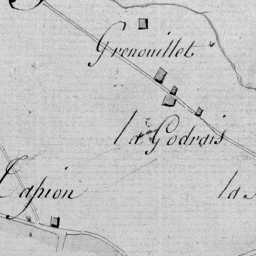 Grenouillet
la Godrais
Lapion
la